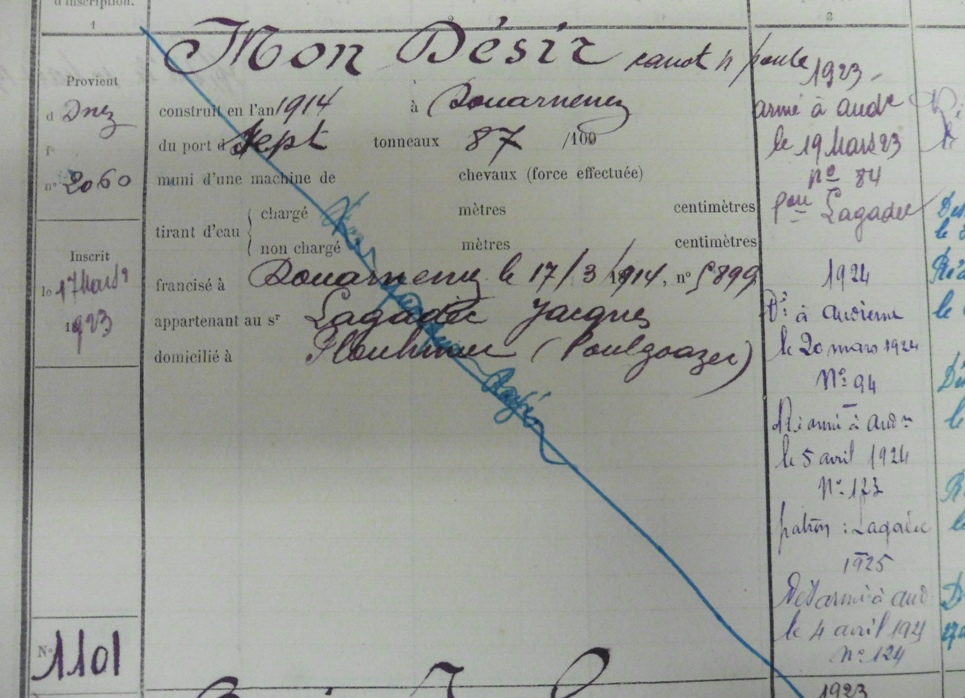 d'inscription.
1
2
Provient
d Dnez
f°
n° 2060
Inscrit
le 17 Mars
1923
N° 1101
Mon Désir canot n/ponté
construit en l'an 1914 à Douarnenez
du port de Sept tonneaux 87 /100
muni d'une machine de chevaux (force effectuée)
tirant d'eau { chargé mètres centimètres
non chargé mètres centimètres
francisé à Douarnenez le 17/3/1914, n° 5899
appartenant au sr Lagadec Jacques
domicilié à Plouhinec (Poulgoazec)
1923
armé à Audne
le 19 Mars 23
n° 84
pon Lagadec
1924
Dé à Audierne
le 20 mars 1924
N° 94
Réarmé à Aud
le 5 avril 1924
N° 123
patron : Lagadec
1925
Désarmé à Aud
le 4 avril 192
n° 124
1923